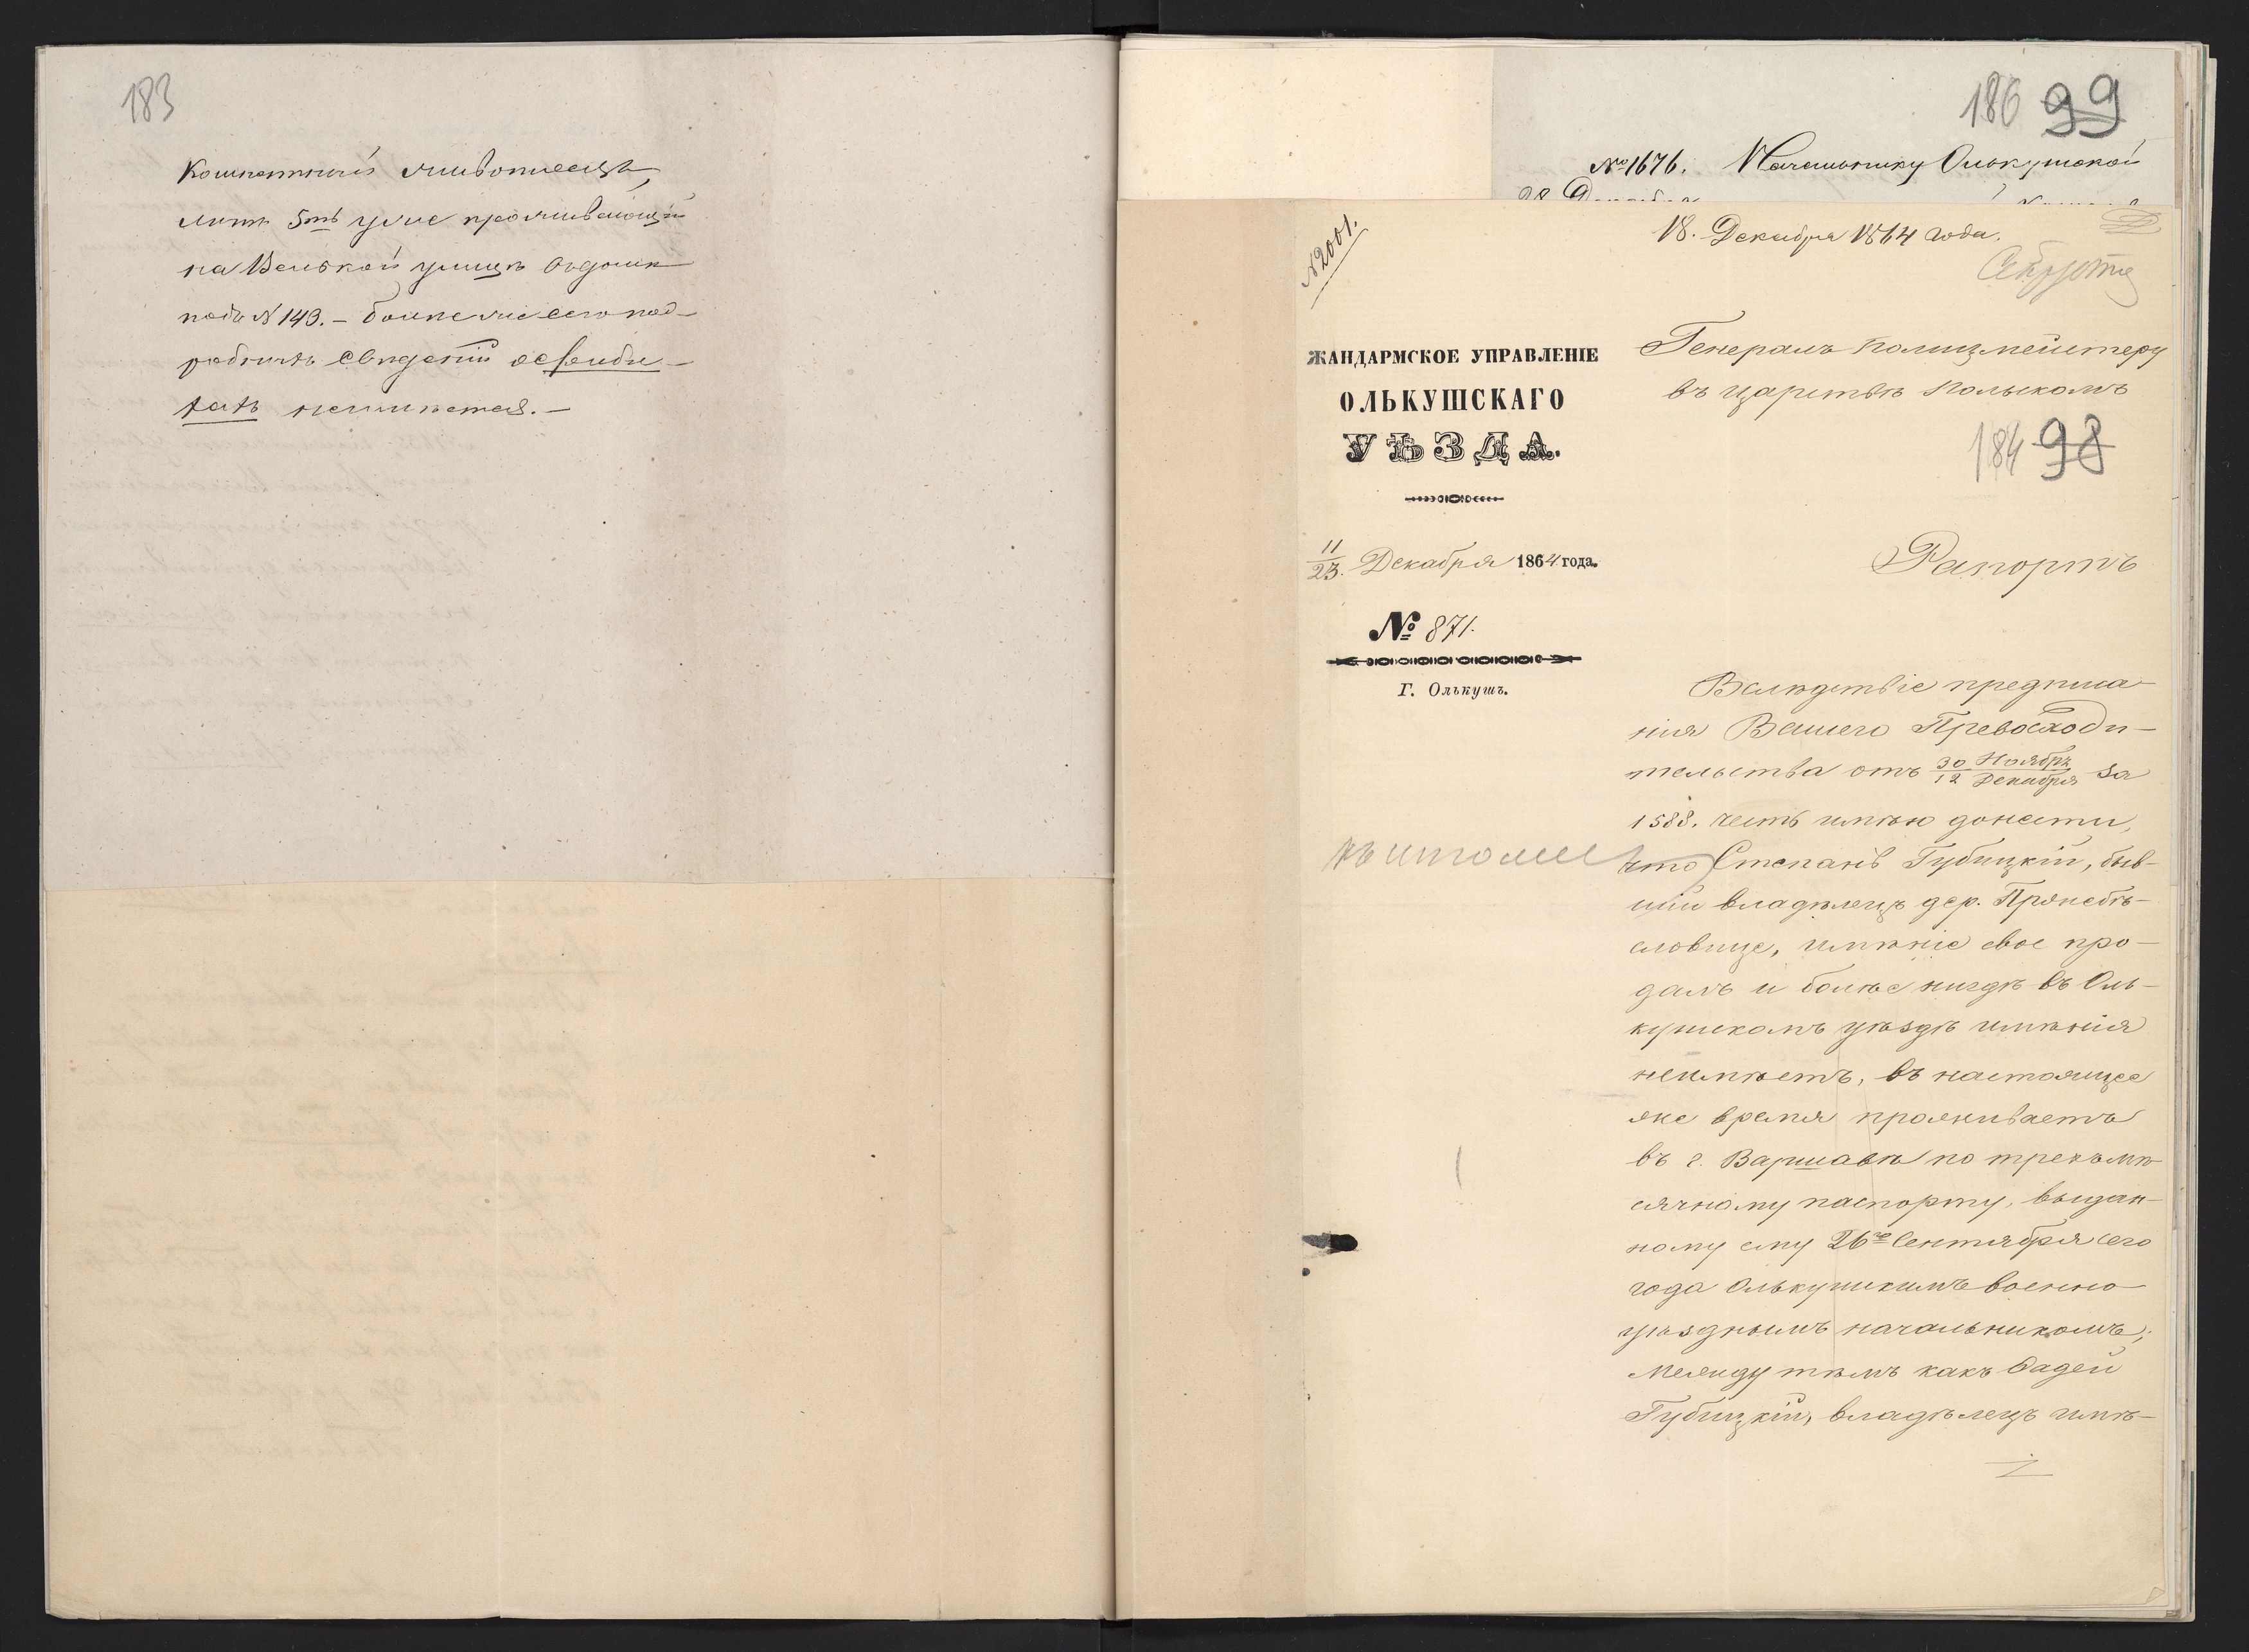 183
Комнатный живописецъ,
лѣтъ 5тъ уже проживающій
на Вельской улицѣ въ домѣ
подъ N 149. — болѣе же сего под-
робныхъ свѣденій
неимѣется. —
186 99
№ 1676. Начальнику Олькушской
N 2001.
18. Декабря 1864 года.
Секретно
ЖАНДАРМСКОЕ УПРАВЛЕНІЕ
ОЛЬКУШСКАГО
УѢЗДА.
11/23. Декабря 1864 года.
№ 871.
Г. Олькушъ.
Генералъ Полицмейстеру
въ Царствѣ Польскомъ
184 98
Рапортъ
Вслѣдствіе предписа-
нія Вашего Превосходи-
тельства отъ 30 Ноября/12 Декабря за
1588. честь имѣю донести,
что Степанъ Губицкій, быв-
шій владѣлецъ дер.
словице, имѣніе свое про-
далъ и болѣе нигдѣ въ Оль-
кушскомъ уѣздѣ имѣнія
неимѣетъ, въ настоящее
же время проживаетъ
въ г. Варшавѣ по трехъмѣ-
сячному паспорту, выдан-
ному ему 26го Сентября сего
года Олькушскимъ военно
уѣзднымъ начальникомъ;
Между тѣмъ какъ Фадей
Губицкій, владѣлецъ имѣ-